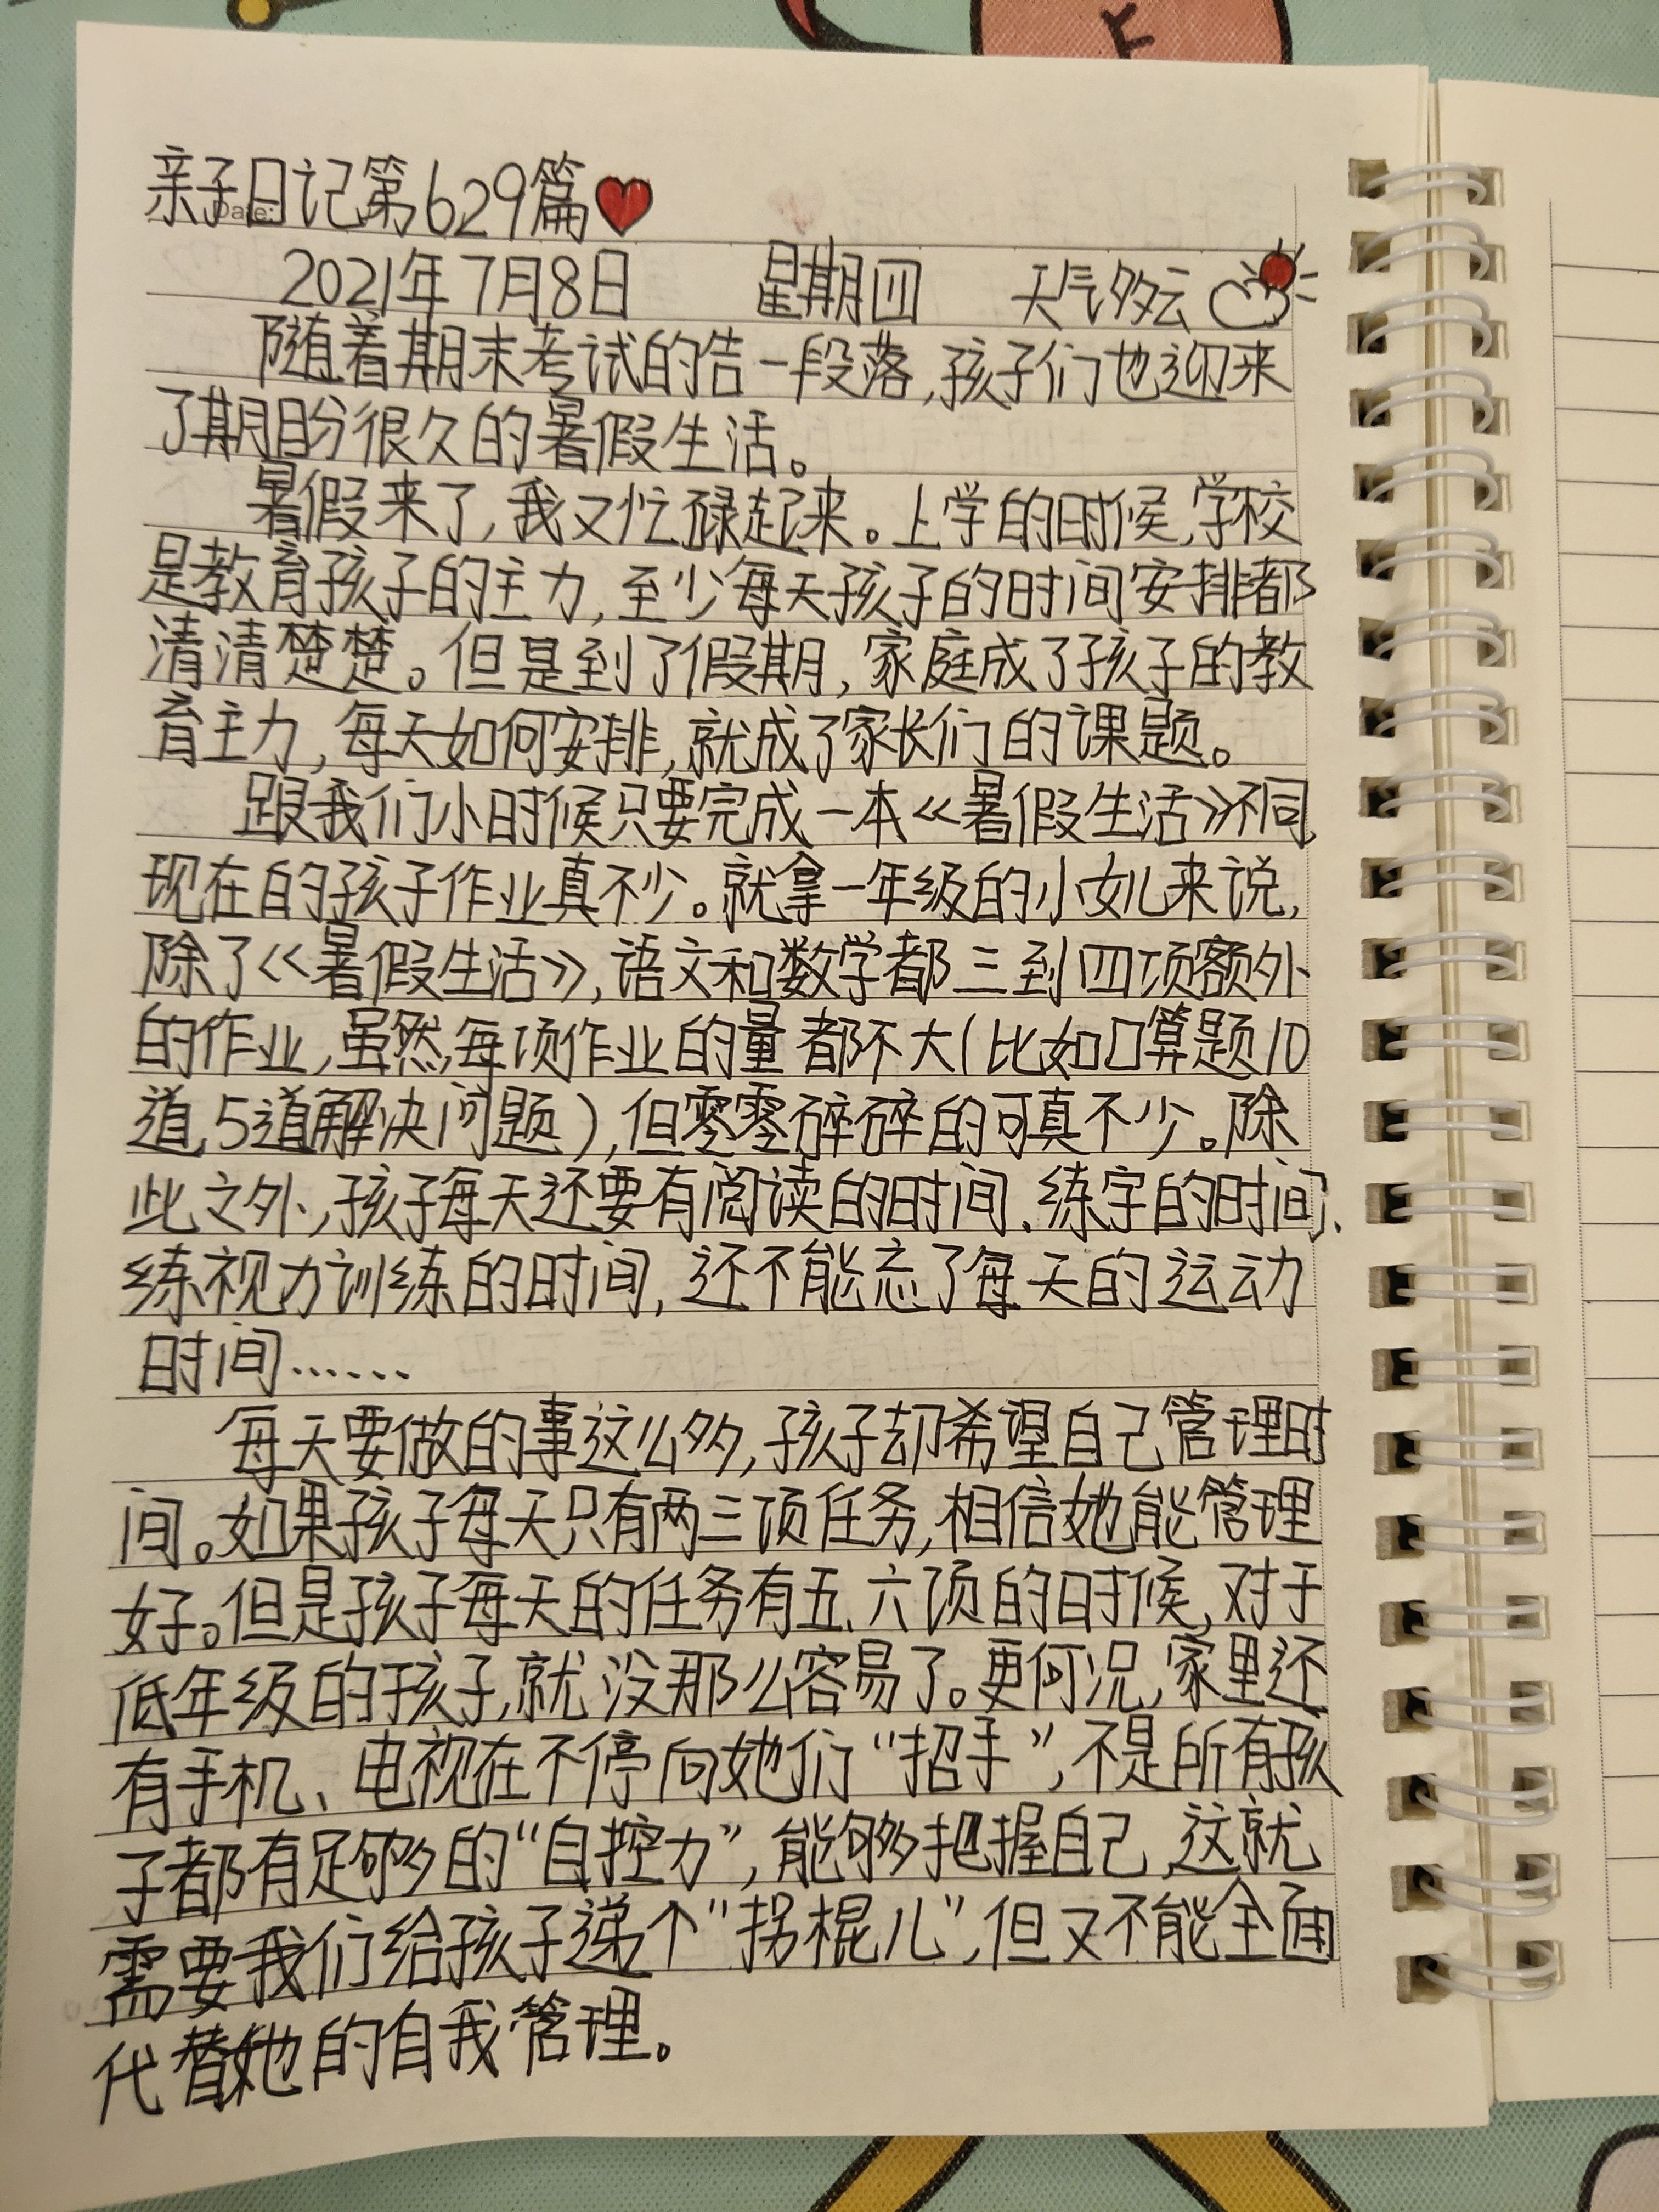 亲子日记第629篇
Date:
2021年7月8日 星期四 天气多云
随着期末考试的告一段落,孩子们也迎来
了期盼很久的暑假生活。
暑假来了,我又忙碌起来。上学的时候,学校
是教育孩子的主力,至少每天孩子的时间安排都
清清楚楚。但是到了假期,家庭成了孩子的教
育主力,每天如何安排,就成了家长们的课题。
跟我们小时候只要完成一本《暑假生活》不同,
现在的孩子作业真不少。就拿一年级的小女儿来说,
除了《暑假生活》,语文和数学都三到四项额外
的作业,虽然每项作业的量都不大(比如口算题10
道,5道解决问题),但零零碎碎的可真不少。除
此之外,孩子每天还要有阅读的时间、练字的时间、
练视力训练的时间,还不能忘了每天的运动
时间……
每天要做的事这么多,孩子却希望自己管理时
间。如果孩子每天只有两三项任务,相信她能管理
好。但是孩子每天的任务有五、六项的时候,对于
低年级的孩子,就没那么容易了。更何况,家里还
有手机、电视在不停向她们“招手”,不是所有孩
子都有足够的“自控力”,能够把握自己,这就
需要我们给孩子递个“拐棍儿”,但又不能全面
代替她的自我管理。